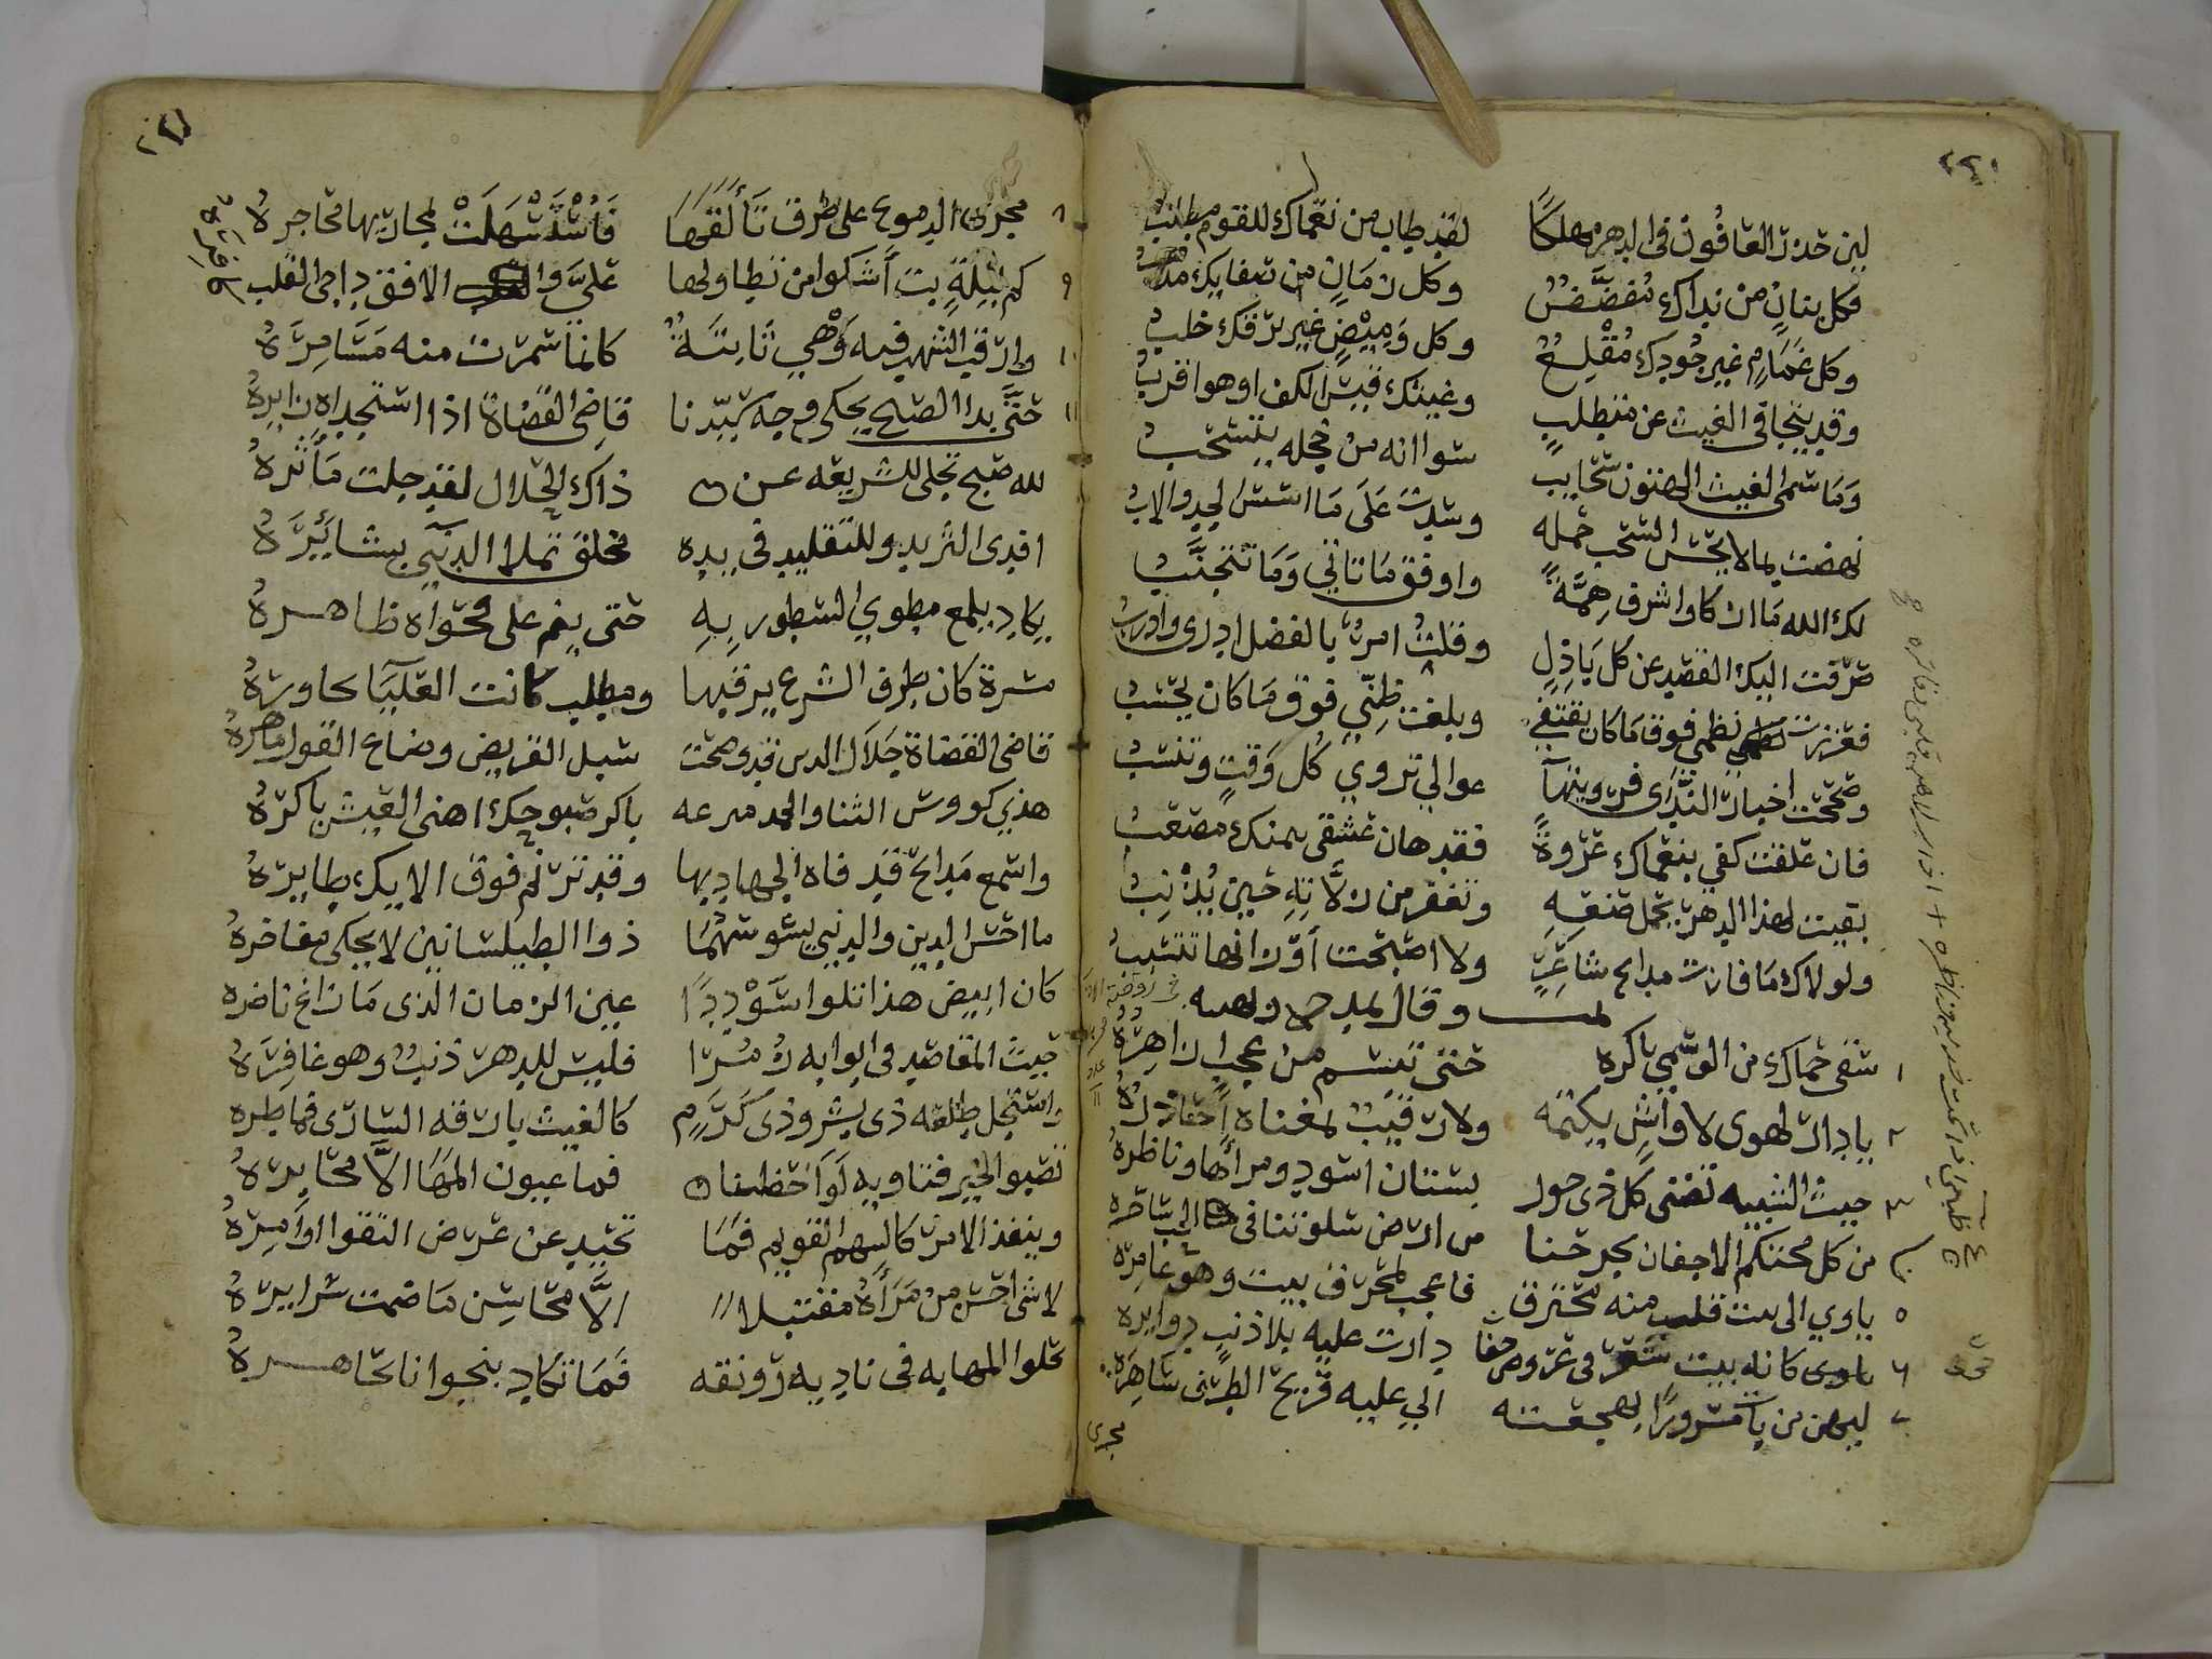 ٢٢٠
لين حدث العافون في الدهر مهلكًا لقد طاب من نعماك للقوم مطلبُ
فكل بنانٍ من نداك مُفضَّضٌ وكل زمانٍ من صفايك مذهبُ
وكل غمامٍ غير جُودك مُقْلِعٌ وكل وَمِيْضٍ غير برقك خلبُ
وقد يتجافى الغيث عن متطلبٍ وغيثك قيس الكف او هو اقربُ
وما سمى الغيث الهتون سحايبٌ سوا انه من خجله يتسحبُ
نهضت بما لا يحسن السحب حمله وشدت على ما اسس الجد والابُ
لك الله ما ازكا واشرف هِمَّةً واوفق ما تاتي وما تتجنَّبُ
صرفت اليك القصد عن كل باذلٍ وقلت امرؤٌ بالفضل ادرى وادربُ
فعززت نظمي فوق ما كان يقتضي وبلغت ظنِّي فوق ما كان يحسبُ
وصححت اخبار النَّدى فرويتها عوالي تروي كُل وَقتٍ وتنسبُ
فان علقت كفي بنعماك عروةً فقد هان عشقى بمنك مصعبُ
بقيت لهذا الدهر تحمل صنعهِ وتغفر من زلَّاتِهِ حين يُذْنِبُ
ولولاك ما فازت مدايح شاعرٍ ولا اصبحت اوزانها تتسببُ
وقال يمدح
١ سقى حماك من الوسمي باكره حتى تبسم من عجب ازاهرُهُ
٢ يا دار لهوى لا واشٍ يكتمه ولا رقيبٌ بمغناه احاذرهُ
٣ حيث الشبيبه تصبى كل ذى حور بستان اسود ومرآها وناظرهُ
٤ من كل محتكم الاجفان يجرحنا من ارض سلوتنا في الحب ساحره
٥ ياوي الى بيت قلب منه محترق فاعجب لمحترق بيت وهو عامره
٦ ياوى كانه بيت شعر في عروض جفا دارت عليه بلا ذنبٍ دوايره
٧ ليهن من بات مسرورًا بهجعته انى عليه قريح الطرف ساهره
مجرى
٢٢١
٨ مجرى الدموع على طرف تألقها فاستسهلت لمجاريها محاجرهُ
٩ كم ليلةٍ بت أشكوا من تطاولها عليَّ والافق داجى القلب
١٠ وارقب الشهب فيه وَهْي ثابتةٌ كانما سمرت منه مسامرهُ
١١ حتَّى بدا الصبح يحكى وجه سيدنا قاضي القضاة اذا استجداه زايره
لله صبح تجلى للشريعه عن ذاك الجلال لقد جلت مآثرهُ
افدى البريد وللتقليد في يده مخلق تملا الدنيي بشايرهُ
يكاد يلمع مطوي السطور بهِ حتى ينم على فحواه ظاهرهُ
مسرة كان طرف الشرع يرقبها ومطلب كانت العليا تحاورهُ
قاضي القضاة جلال الدين قد وضحت سبل القريض وضاع القول ماهرهُ
هذي كووس الثنا والحمد مترعه باكر صبوحك اهنى العيش باكرهُ
واسمع مدايح قد فاه الجهاد بها وقد ترنم فوق الايك طايرهُ
ما احسن الدين والدنيي يسوسهما ذوا الطيلسانين لا يحكى مفاخرهُ
كان ابيض هذا تلوا سَوْددًا عين الزمان الذى ما زاغ ناضره
حيث المقاصد في ابوابه زُمُرًا فليس للدهر ذنبٌ وهو غافِرهُ
واستجل طلعه ذى بشر وذى كَرَمٍ كالغيث بارقه السارى فماطره
تصبو الحبر فتاويه لواحظنا فما عيون المها الَّا محابرهُ
وينفذ الامر كالسهم القويم فما تحيد عن غرض التقوا اوامرهُ
لا شى احسن من مَرآهُ مقتبلا الَّا محاسِن ما ضمت سرايرهُ
تحلوا المهابه في ناديه رونقه فما تكاد بنجوانا تجاهرهُ